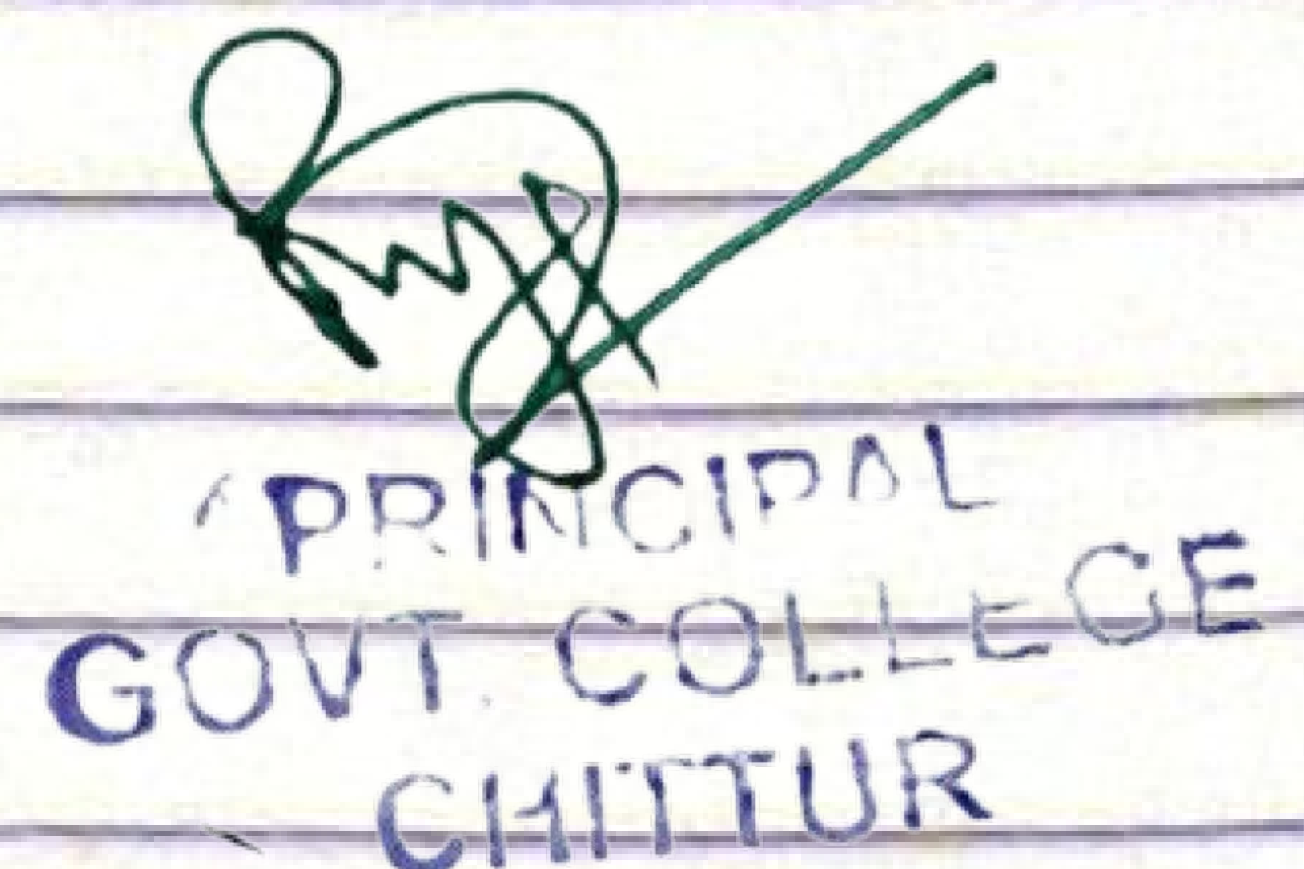 PRINCIPAL
GOVT. COLLEGE
CHITTUR